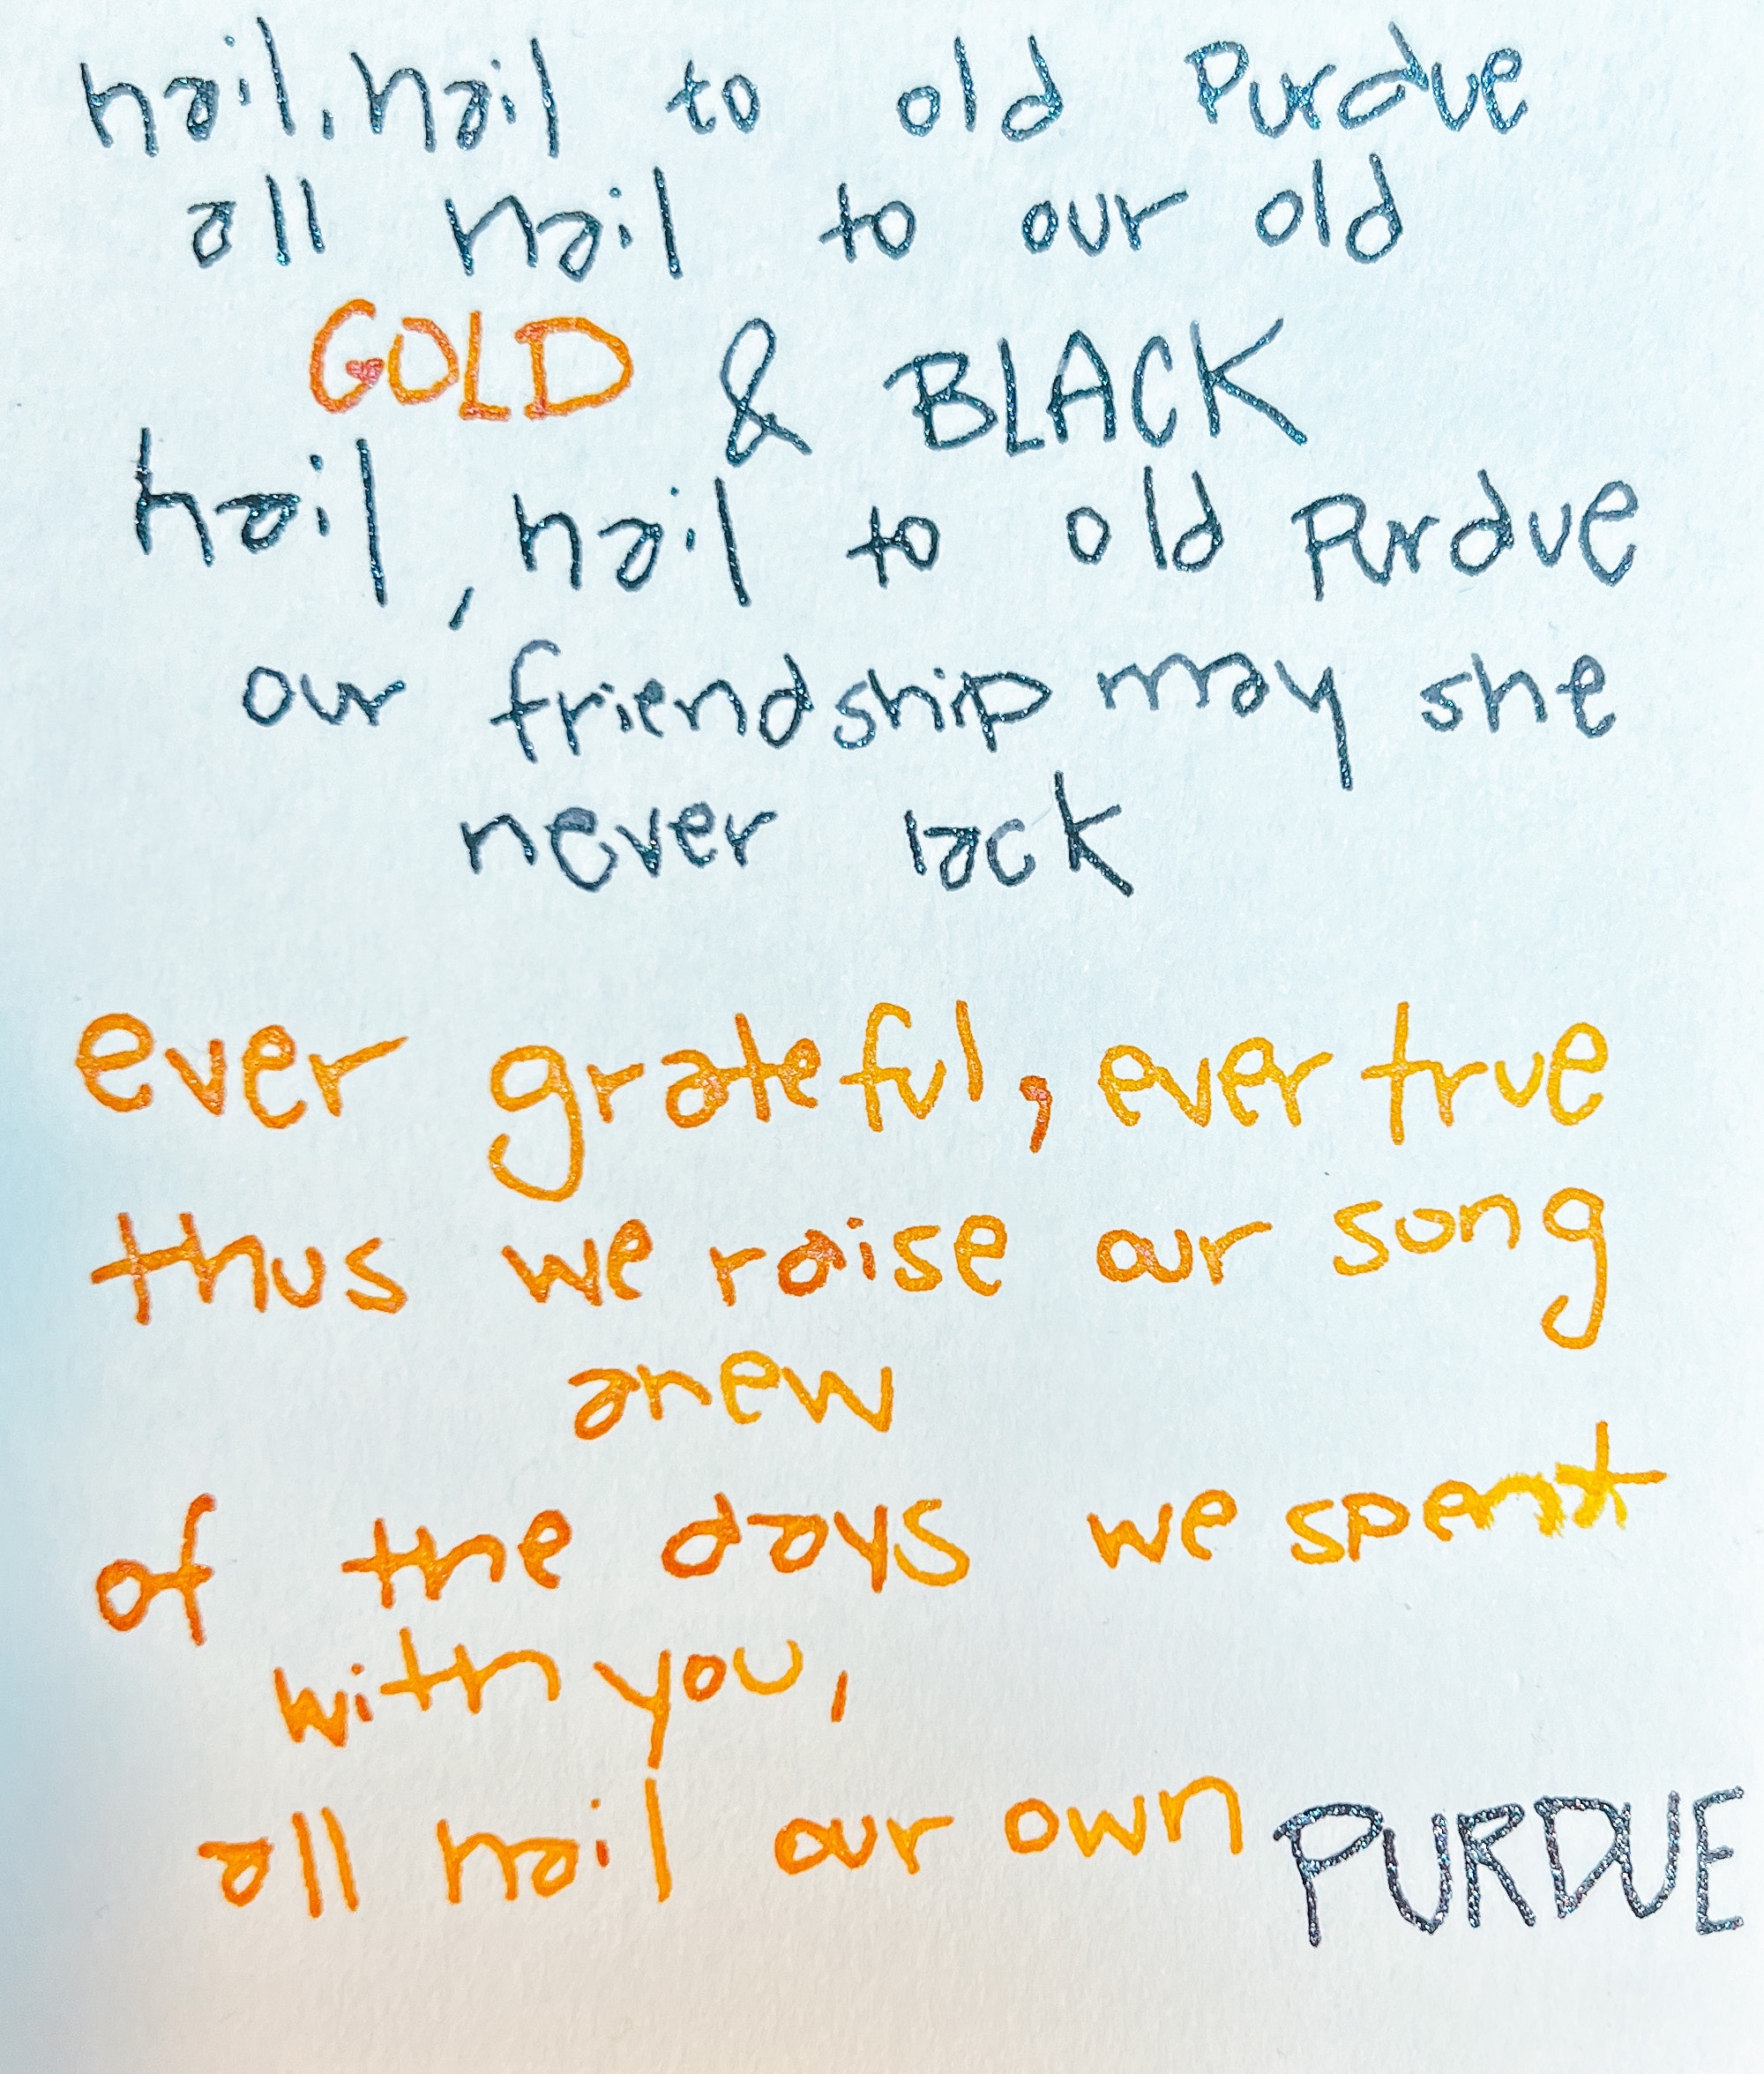 hail, hail to old Purdue
all hail to our old
GOLD & BLACK
hail, hail to old Purdue
our friendship may she
never lack
ever grateful, ever true
thus we raise our song
anew
of the days we spent
with you,
all hail our own PURDUE